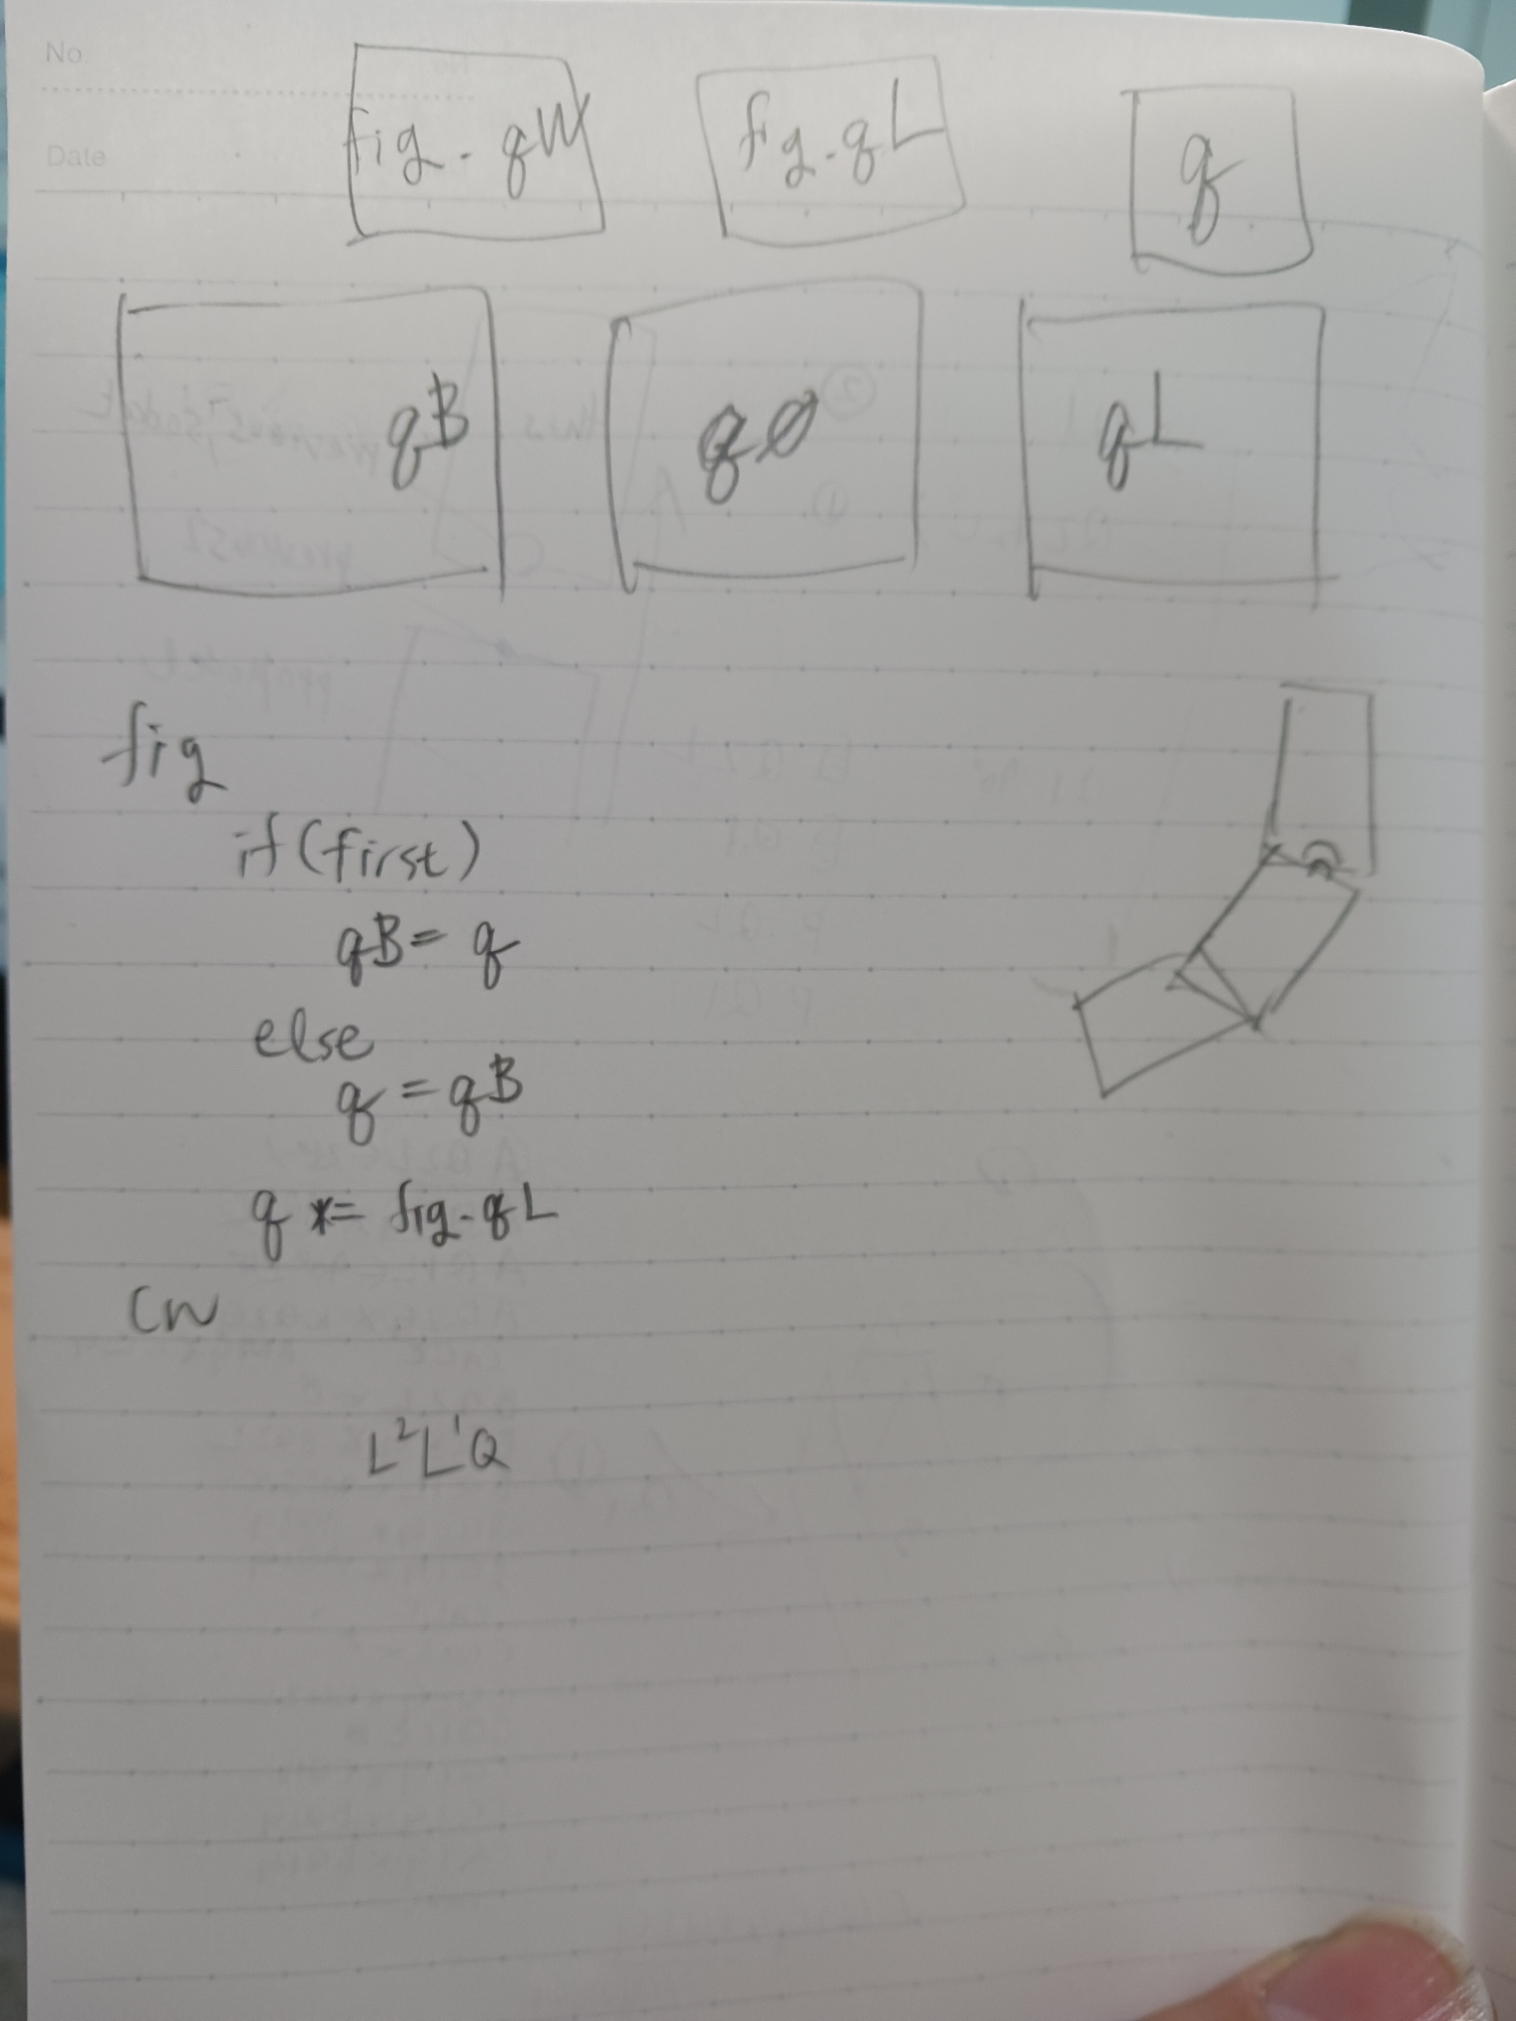 No.
Date
fig. qW
fig. qL
q
qB
qØ
qL
fig
if(first)
qB = q
else
q = qB
q *= fig. qL
L²L¹Q